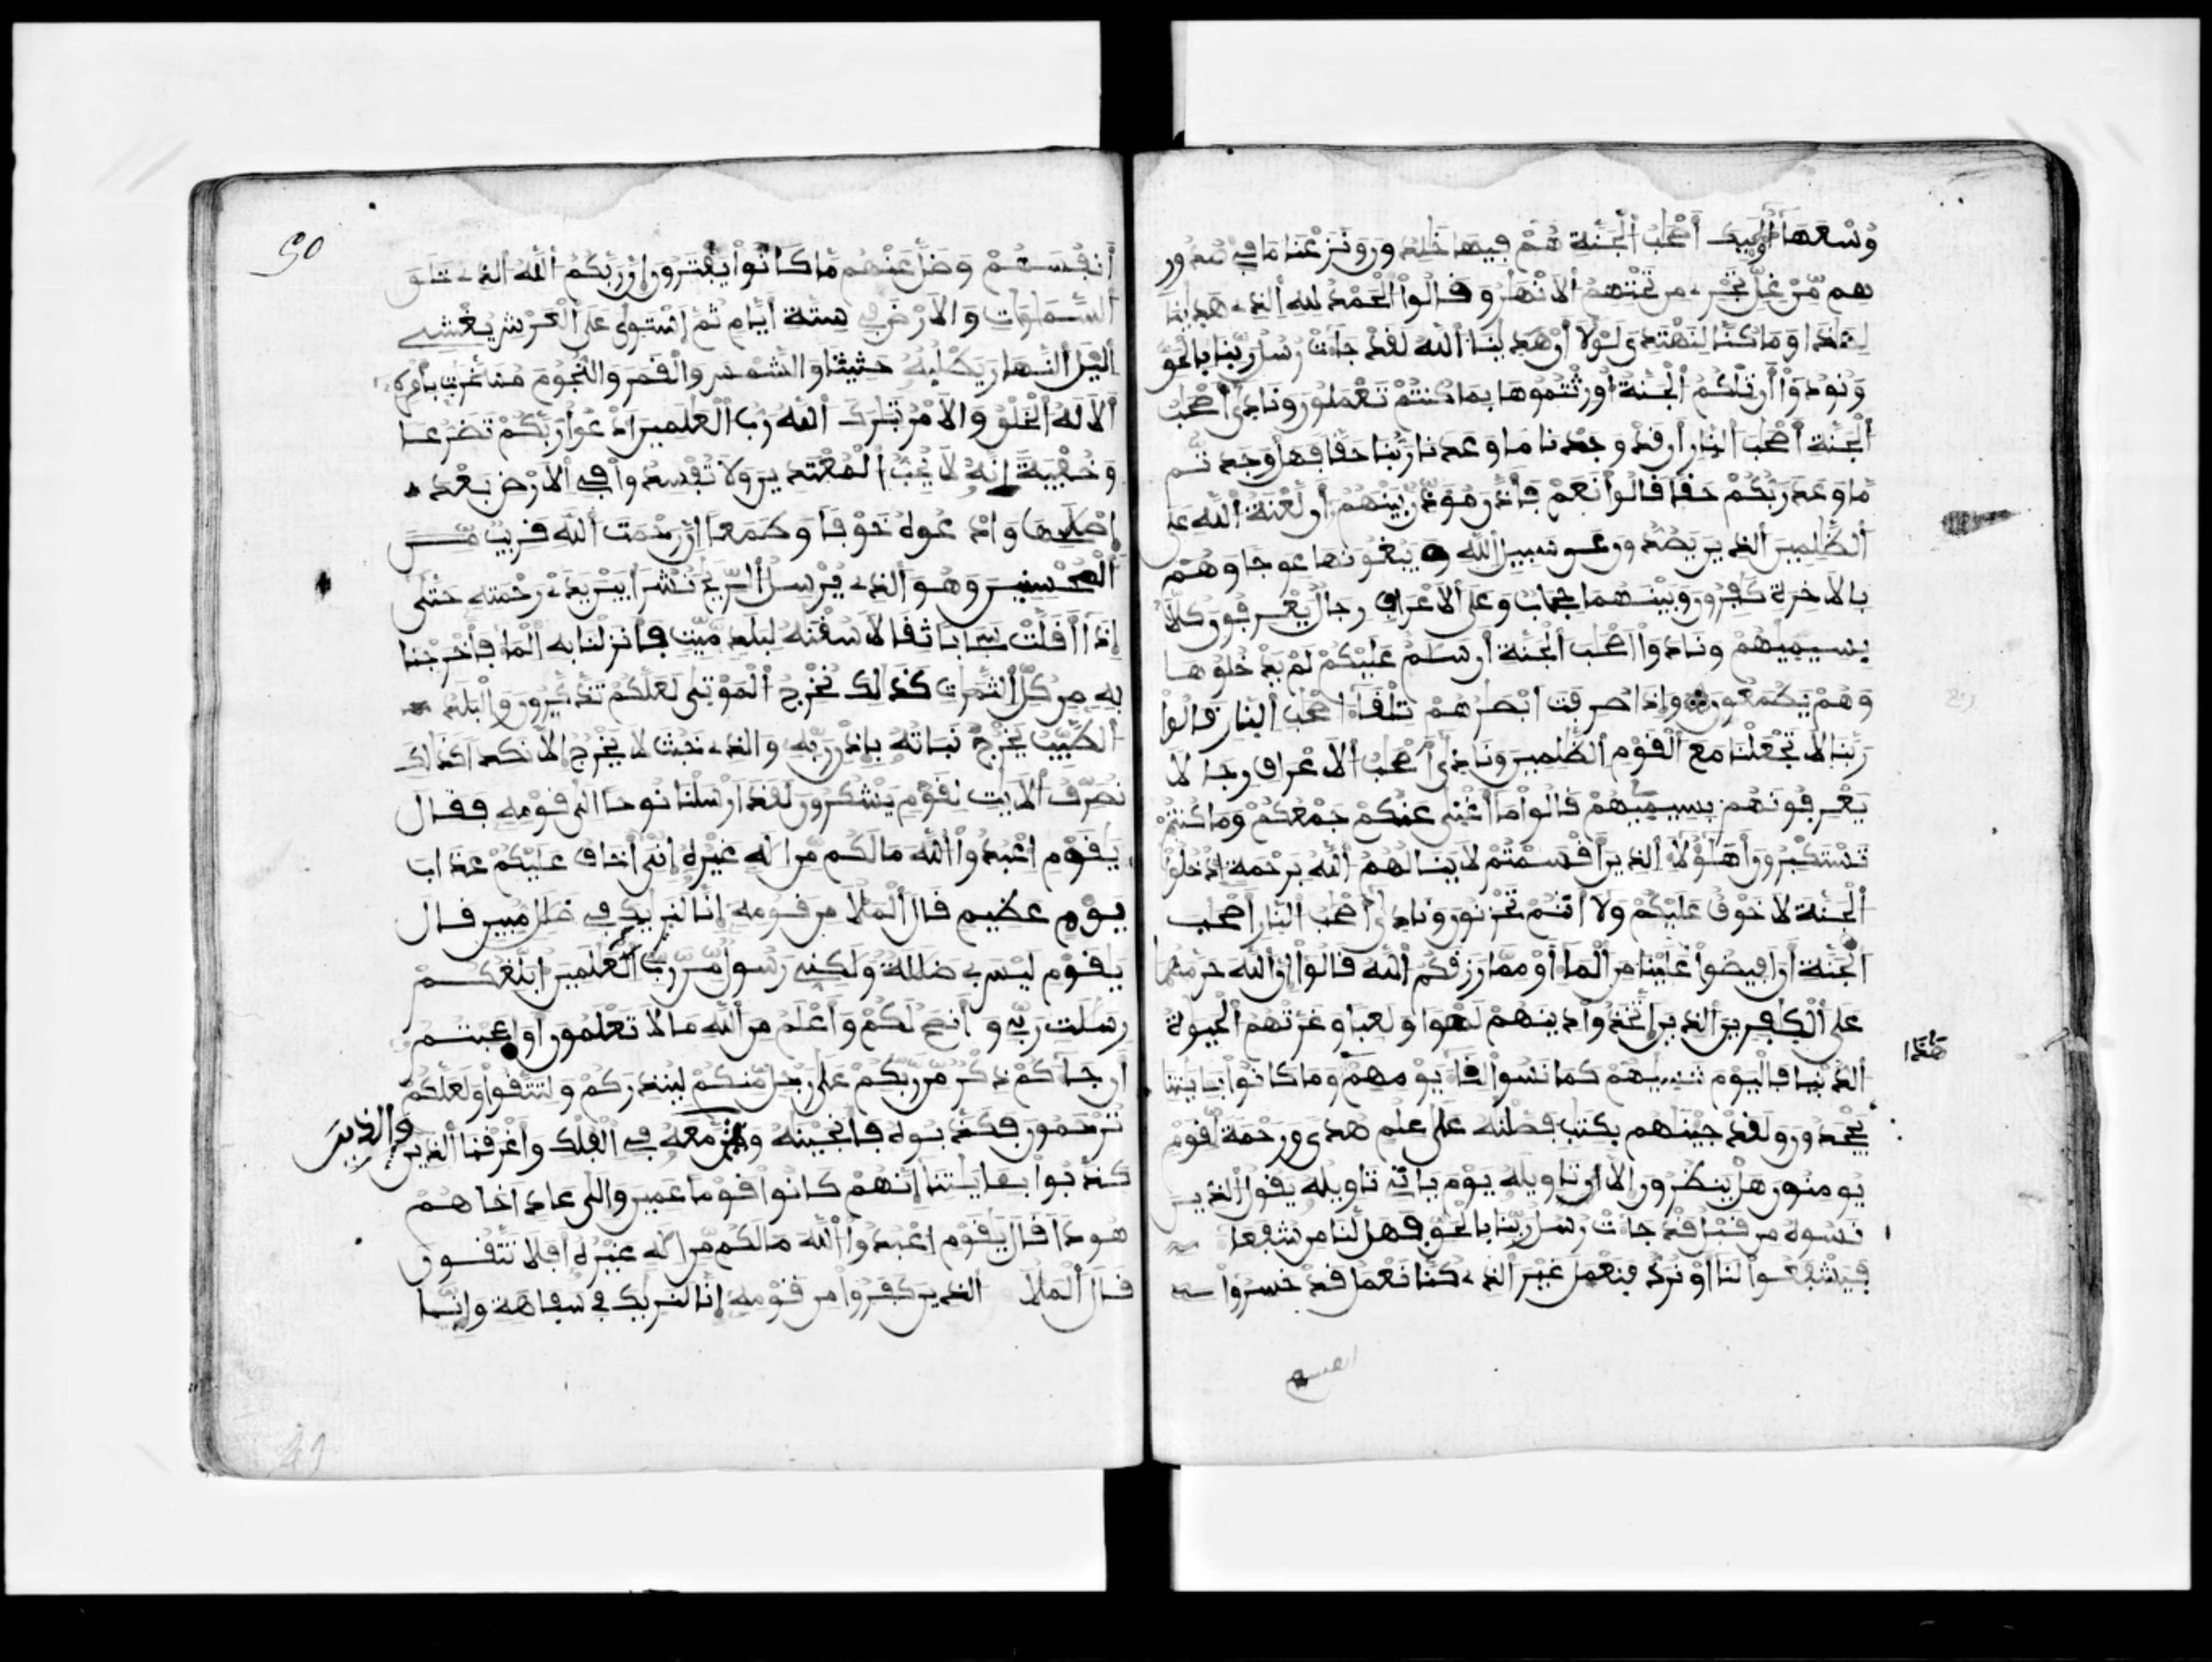 وُسْعَهَا أُولَٰئِكَ أَصْحَٰبُ ٱلْجَنَّةِ هُمْ فِيهَا خَٰلِدُونَ وَنَزَعْنَا مَا فِي صُدُورِ
هِم مِّنْ غِلٍّ تَجْرِي مِن تَحْتِهِمُ ٱلْأَنْهَٰرُ وَقَالُوا ٱلْحَمْدُ لِلَّهِ ٱلَّذِي هَدَىٰنَا
لِهَٰذَا وَمَا كُنَّا لِنَهْتَدِيَ لَوْلَا أَنْ هَدَىٰنَا ٱللَّهُ لَقَدْ جَآءَتْ رُسُلُ رَبِّنَا بِالْحَقِّ
وَنُودُوا أَن تِلْكُمُ ٱلْجَنَّةُ أُورِثْتُمُوهَا بِمَا كُنتُمْ تَعْمَلُونَ وَنَادَىٰ أَصْحَٰبُ
ٱلْجَنَّةِ أَصْحَٰبَ ٱلنَّارِ أَن قَدْ وَجَدْنَا مَا وَعَدَنَا رَبُّنَا حَقًّا فَهَلْ وَجَدتُّم
مَّا وَعَدَ رَبُّكُمْ حَقًّا قَالُوا نَعَمْ فَأَذَّنَ مُوَذِّنٌ بَيْنَهُمْ أَن لَّعْنَةُ ٱللَّهِ عَلَى
ٱلظَّٰلِمِينَ ٱلَّذِينَ يَصُدُّونَ عَن سَبِيلِ ٱللَّهِ وَيَبْغُونَهَا عِوَجًا وَهُم
بِالْأَخِرَةِ كَٰفِرُونَ وَبَيْنَهُمَا حِجَابٌ وَعَلَى ٱلْأَعْرَافِ رِجَالٌ يَعْرِفُونَ كُلًّا
بِسِيمَيٰهُمْ وَنَادَوْا أَصْحَٰبَ ٱلْجَنَّةِ أَن سَلَٰمٌ عَلَيْكُمْ لَمْ يَدْخُلُوهَا
وَهُمْ يَطْمَعُونَ وَإِذَا صُرِفَتْ أَبْصَٰرُهُمْ تِلْقَآءَ أَصْحَٰبِ ٱلنَّارِ قَالُوا
رَبَّنَا لَا تَجْعَلْنَا مَعَ ٱلْقَوْمِ ٱلظَّٰلِمِينَ وَنَادَىٰ أَصْحَٰبُ ٱلْأَعْرَافِ رِجَالًا
يَعْرِفُونَهُم بِسِيمَيٰهُمْ قَالُوا مَا أَغْنَىٰ عَنكُمْ جَمْعُكُمْ وَمَا كُنتُمْ
تَسْتَكْبِرُونَ أَهَٰؤُلَآءِ ٱلَّذِينَ أَقْسَمْتُمْ لَا يَنَالُهُمُ ٱللَّهُ بِرَحْمَةٍ ٱدْخُلُوا
ٱلْجَنَّةَ لَا خَوْفٌ عَلَيْكُمْ وَلَا أَنتُمْ تَحْزَنُونَ وَنَادَىٰ أَصْحَٰبُ ٱلنَّارِ أَصْحَٰبَ
ٱلْجَنَّةِ أَنْ أَفِيضُوا عَلَيْنَا مِنَ ٱلْمَآءِ أَوْ مِمَّا رَزَقَكُمُ ٱللَّهُ قَالُوا إِنَّ ٱللَّهَ حَرَّمَهُمَا
عَلَى ٱلْكَٰفِرِينَ ٱلَّذِينَ ٱتَّخَذُوا دِينَهُمْ لَهْوًا وَلَعِبًا وَغَرَّتْهُمُ ٱلْحَيَوٰةُ
ٱلدُّنْيَا فَالْيَوْمَ نَنسَيٰهُمْ كَمَا نَسُوا لِقَآءَ يَوْمِهِمْ وَمَا كَانُوا بِـَٔايَٰتِنَا
هَٰذَا
يَجْحَدُونَ وَلَقَدْ جِئْنَٰهُم بِكِتَٰبٍ فَصَّلْنَٰهُ عَلَىٰ عِلْمٍ هُدًى وَرَحْمَةً لِّقَوْمٍ
يُومِنُونَ هَلْ يَنظُرُونَ إِلَّا تَاوِيلَهُ يَوْمَ يَاتِي تَاوِيلُهُ يَقُولُ ٱلَّذِينَ
نَسُوهُ مِن قَبْلُ قَدْ جَآءَتْ رُسُلُ رَبِّنَا بِالْحَقِّ فَهَل لَّنَا مِن شُفَعَآءَ
فَيَشْفَعُوا لَنَا أَوْ نُرَدُّ فَنَعْمَلَ غَيْرَ ٱلَّذِي كُنَّا نَعْمَلُ قَدْ خَسِرُوا
انفسهم
50
أَنفُسَهُمْ وَضَلَّ عَنْهُم مَّا كَانُوا يَفْتَرُونَ إِنَّ رَبَّكُمُ ٱللَّهُ ٱلَّذِي خَلَقَ
ٱلسَّمَٰوَٰتِ وَٱلْأَرْضَ فِي سِتَّةِ أَيَّامٍ ثُمَّ ٱسْتَوَىٰ عَلَى ٱلْعَرْشِ يُغْشِي
ٱلَّيْلَ ٱلنَّهَارَ يَطْلُبُهُ حَثِيثًا وَٱلشَّمْسَ وَٱلْقَمَرَ وَٱلنُّجُومَ مُسَخَّرَٰتٍ بِأَمْرِهِ
أَلَا لَهُ ٱلْخَلْقُ وَٱلْأَمْرُ تَبَٰرَكَ ٱللَّهُ رَبُّ ٱلْعَٰلَمِينَ ٱدْعُوا رَبَّكُمْ تَضَرُّعًا
وَخُفْيَةً إِنَّهُ لَا يُحِبُّ ٱلْمُعْتَدِينَ وَلَا تُفْسِدُوا فِي ٱلْأَرْضِ بَعْدَ
إِصْلَٰحِهَا وَٱدْعُوهُ خَوْفًا وَطَمَعًا إِنَّ رَحْمَتَ ٱللَّهِ قَرِيبٌ مِّنَ
ٱلْمُحْسِنِينَ وَهُوَ ٱلَّذِي يُرْسِلُ ٱلرِّيَٰحَ نُشُرًا بَيْنَ يَدَيْ رَحْمَتِهِ حَتَّىٰ
إِذَا أَقَلَّتْ سَحَابًا ثِقَالًا سُقْنَٰهُ لِبَلَدٍ مَّيِّتٍ فَأَنزَلْنَا بِهِ ٱلْمَآءَ فَأَخْرَجْنَا
بِهِ مِن كُلِّ ٱلثَّمَرَٰتِ كَذَٰلِكَ نُخْرِجُ ٱلْمَوْتَىٰ لَعَلَّكُمْ تَذَّكَّرُونَ وَٱلْبَلَدُ
ٱلطَّيِّبُ يَخْرُجُ نَبَاتُهُ بِإِذْنِ رَبِّهِ وَٱلَّذِي خَبُثَ لَا يَخْرُجُ إِلَّا نَكِدًا كَذَٰلِكَ
نُصَرِّفُ ٱلْأَيَٰتِ لِقَوْمٍ يَشْكُرُونَ لَقَدْ أَرْسَلْنَا نُوحًا إِلَىٰ قَوْمِهِ فَقَالَ
يَٰقَوْمِ ٱعْبُدُوا ٱللَّهَ مَا لَكُم مِّنْ إِلَٰهٍ غَيْرُهُ إِنِّي أَخَافُ عَلَيْكُمْ عَذَابَ
يَوْمٍ عَظِيمٍ قَالَ ٱلْمَلَأُ مِن قَوْمِهِ إِنَّا لَنَرَىٰكَ فِي ضَلَٰلٍ مُّبِينٍ قَالَ
يَٰقَوْمِ لَيْسَ بِي ضَلَٰلَةٌ وَلَٰكِنِّي رَسُولٌ مِّن رَّبِّ ٱلْعَٰلَمِينَ أُبَلِّغُكُمْ
رِسَٰلَٰتِ رَبِّي وَأَنصَحُ لَكُمْ وَأَعْلَمُ مِنَ ٱللَّهِ مَا لَا تَعْلَمُونَ أَوَعَجِبْتُمْ
أَن جَآءَكُمْ ذِكْرٌ مِّن رَّبِّكُمْ عَلَىٰ رَجُلٍ مِّنكُمْ لِيُنذِرَكُمْ وَلِتَتَّقُوا وَلَعَلَّكُمْ
تُرْحَمُونَ فَكَذَّبُوهُ فَأَنجَيْنَٰهُ مَعَهُ فِي ٱلْفُلْكِ وَأَغْرَقْنَا ٱلَّذِينَ
وَالَّذِينَ
كَذَّبُوا بِـَٔايَٰتِنَا إِنَّهُمْ كَانُوا قَوْمًا عَمِينَ وَإِلَىٰ عَادٍ أَخَاهُمْ
هُودًا قَالَ يَٰقَوْمِ ٱعْبُدُوا ٱللَّهَ مَا لَكُم مِّنْ إِلَٰهٍ غَيْرُهُ أَفَلَا تَتَّقُونَ
قَالَ ٱلْمَلَأُ ٱلَّذِينَ كَفَرُوا مِن قَوْمِهِ إِنَّا لَنَرَىٰكَ فِي سَفَاهَةٍ وَإِنَّا